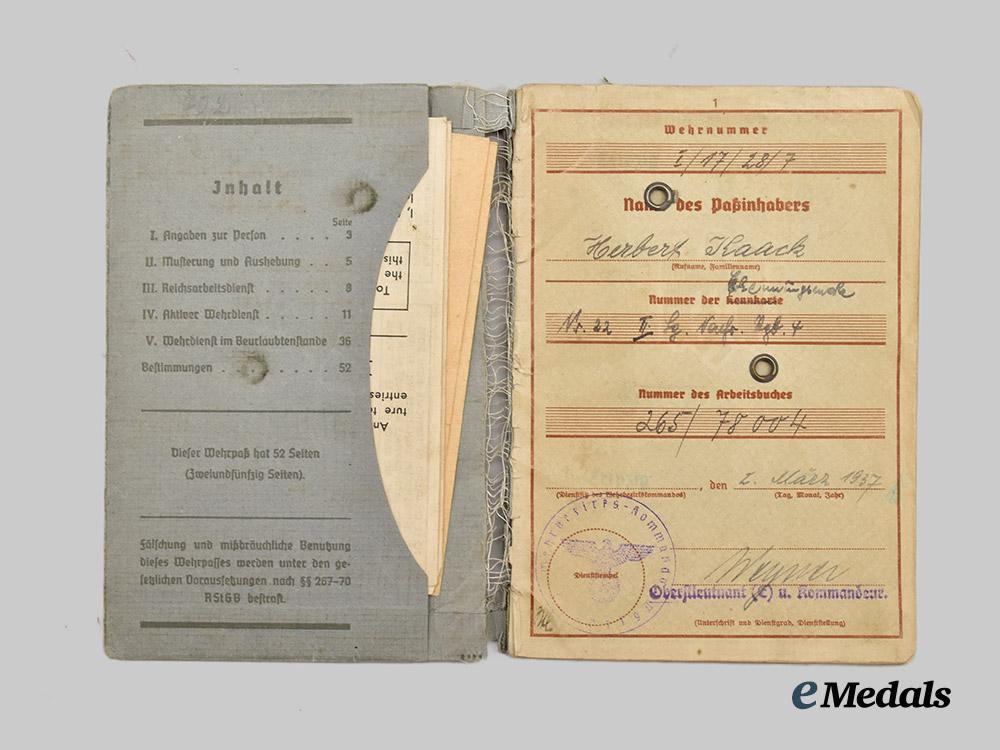 Inhalt
Seite
I. Angaben zur Person . . . . 3
II. Musterung und Aushebung . . 5
III. Reichsarbeitsdienst . . . . 8
IV. Aktiver Wehrdienst . . . . 11
V. Wehrdienst im Beurlaubtenstande 36
Bestimmungen . . . . . . . 52
Dieser Wehrpaß hat 52 Seiten
(Zweiundfünfzig Seiten).
Fälschung und mißbräuchliche Benutzung
dieses Wehrpasses werden unter den ge-
setzlichen Voraussetzungen nach §§ 267-70
RStGB bestraft.
this
the
To
entries
ture to
An
1
Wehrnummer
I/17/28/7
Name des Paßinhabers
Herbert Kaack
(Rufname, Familienname)
Erkennungsmarke
Nummer der Kennkarte
Nr. 22 II
4
Nummer des Arbeitsbuches
265/78004
, den 2. März 1937
(Dienstsitz des Wehrbezirkskommandos)
(Tag, Monat, Jahr)
Wehrbezirks-Kommando
Dienststempel
Oberstleutnant (E) u. Kommandeur.
(Unterschrift und Dienstgrad, Dienststellung)
eMedals